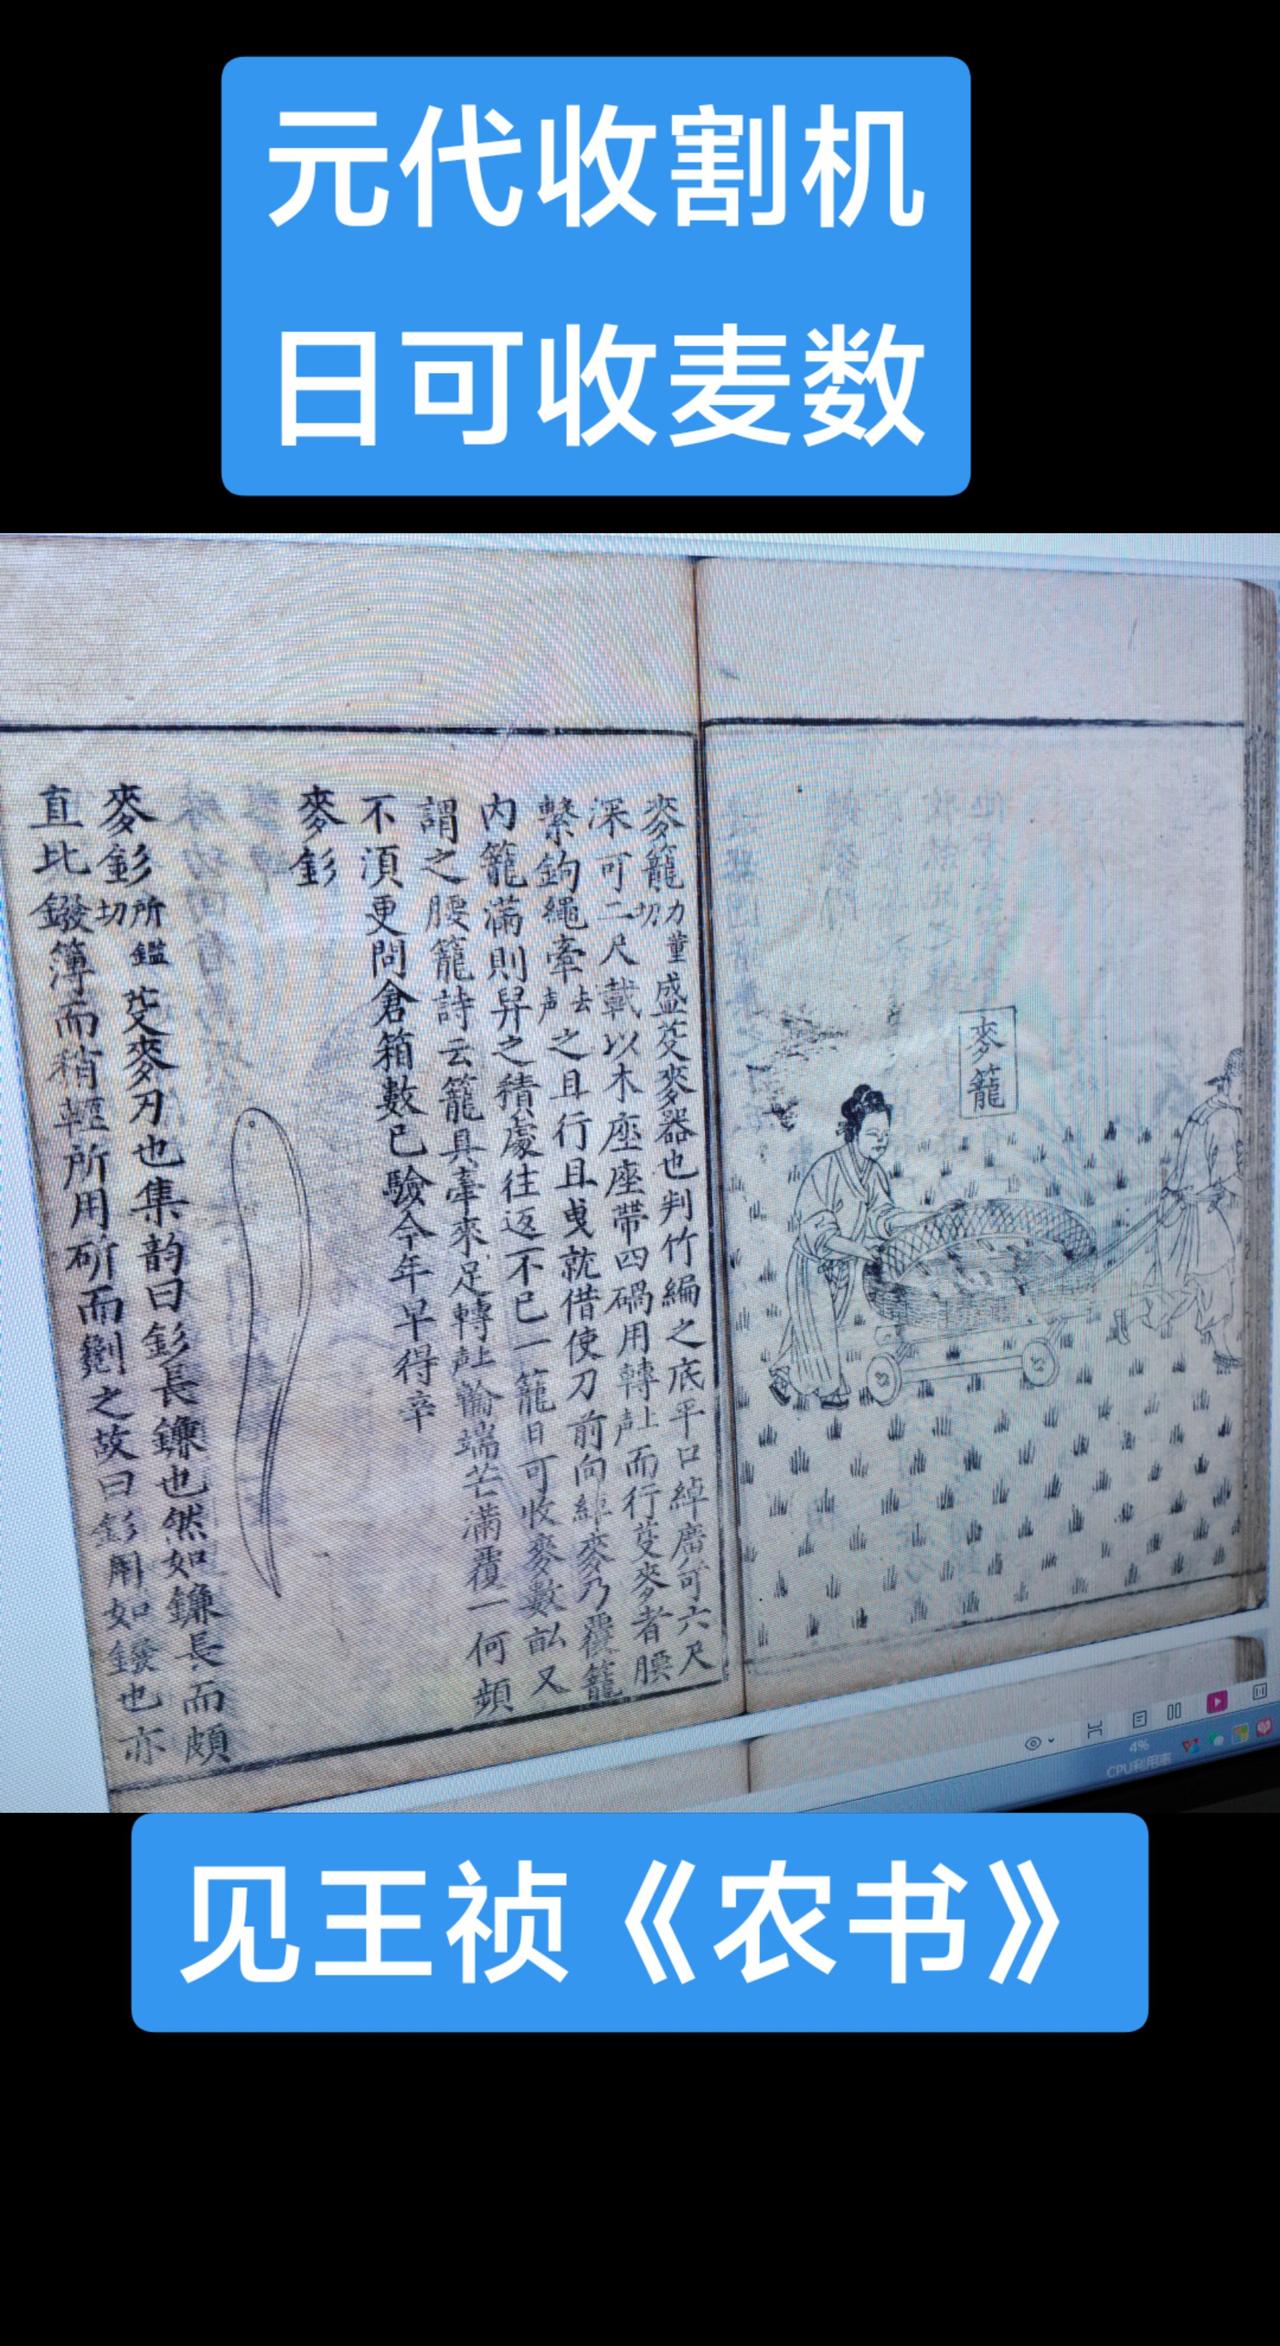 元代收割机
日可收麦数
麥籠
麥籠力董切盛芟麥器也判竹編之底平口綽廣可六尺
深可二尺載以木座座帶四碢用轉上声而行芟麥者腰
繫鉤繩牽去声之且行且曳就借使刀前向綽麥乃覆籠
内籠滿則舁之積處往返不已一籠日可收麥數畝又
謂之腰籠詩云籠具牽來足轉上声輪端芒滿覆一何頻
不湏更問倉箱數已驗今年早得辛
麥釤
麥釤所鑑切芟麥刃也集韵曰釤長鐮也然如鐮長而頗
直比鏺簿而稍輕所用斫而劖之故曰釤用如鏺也亦
4%
CPU利用率
见王祯《农书》